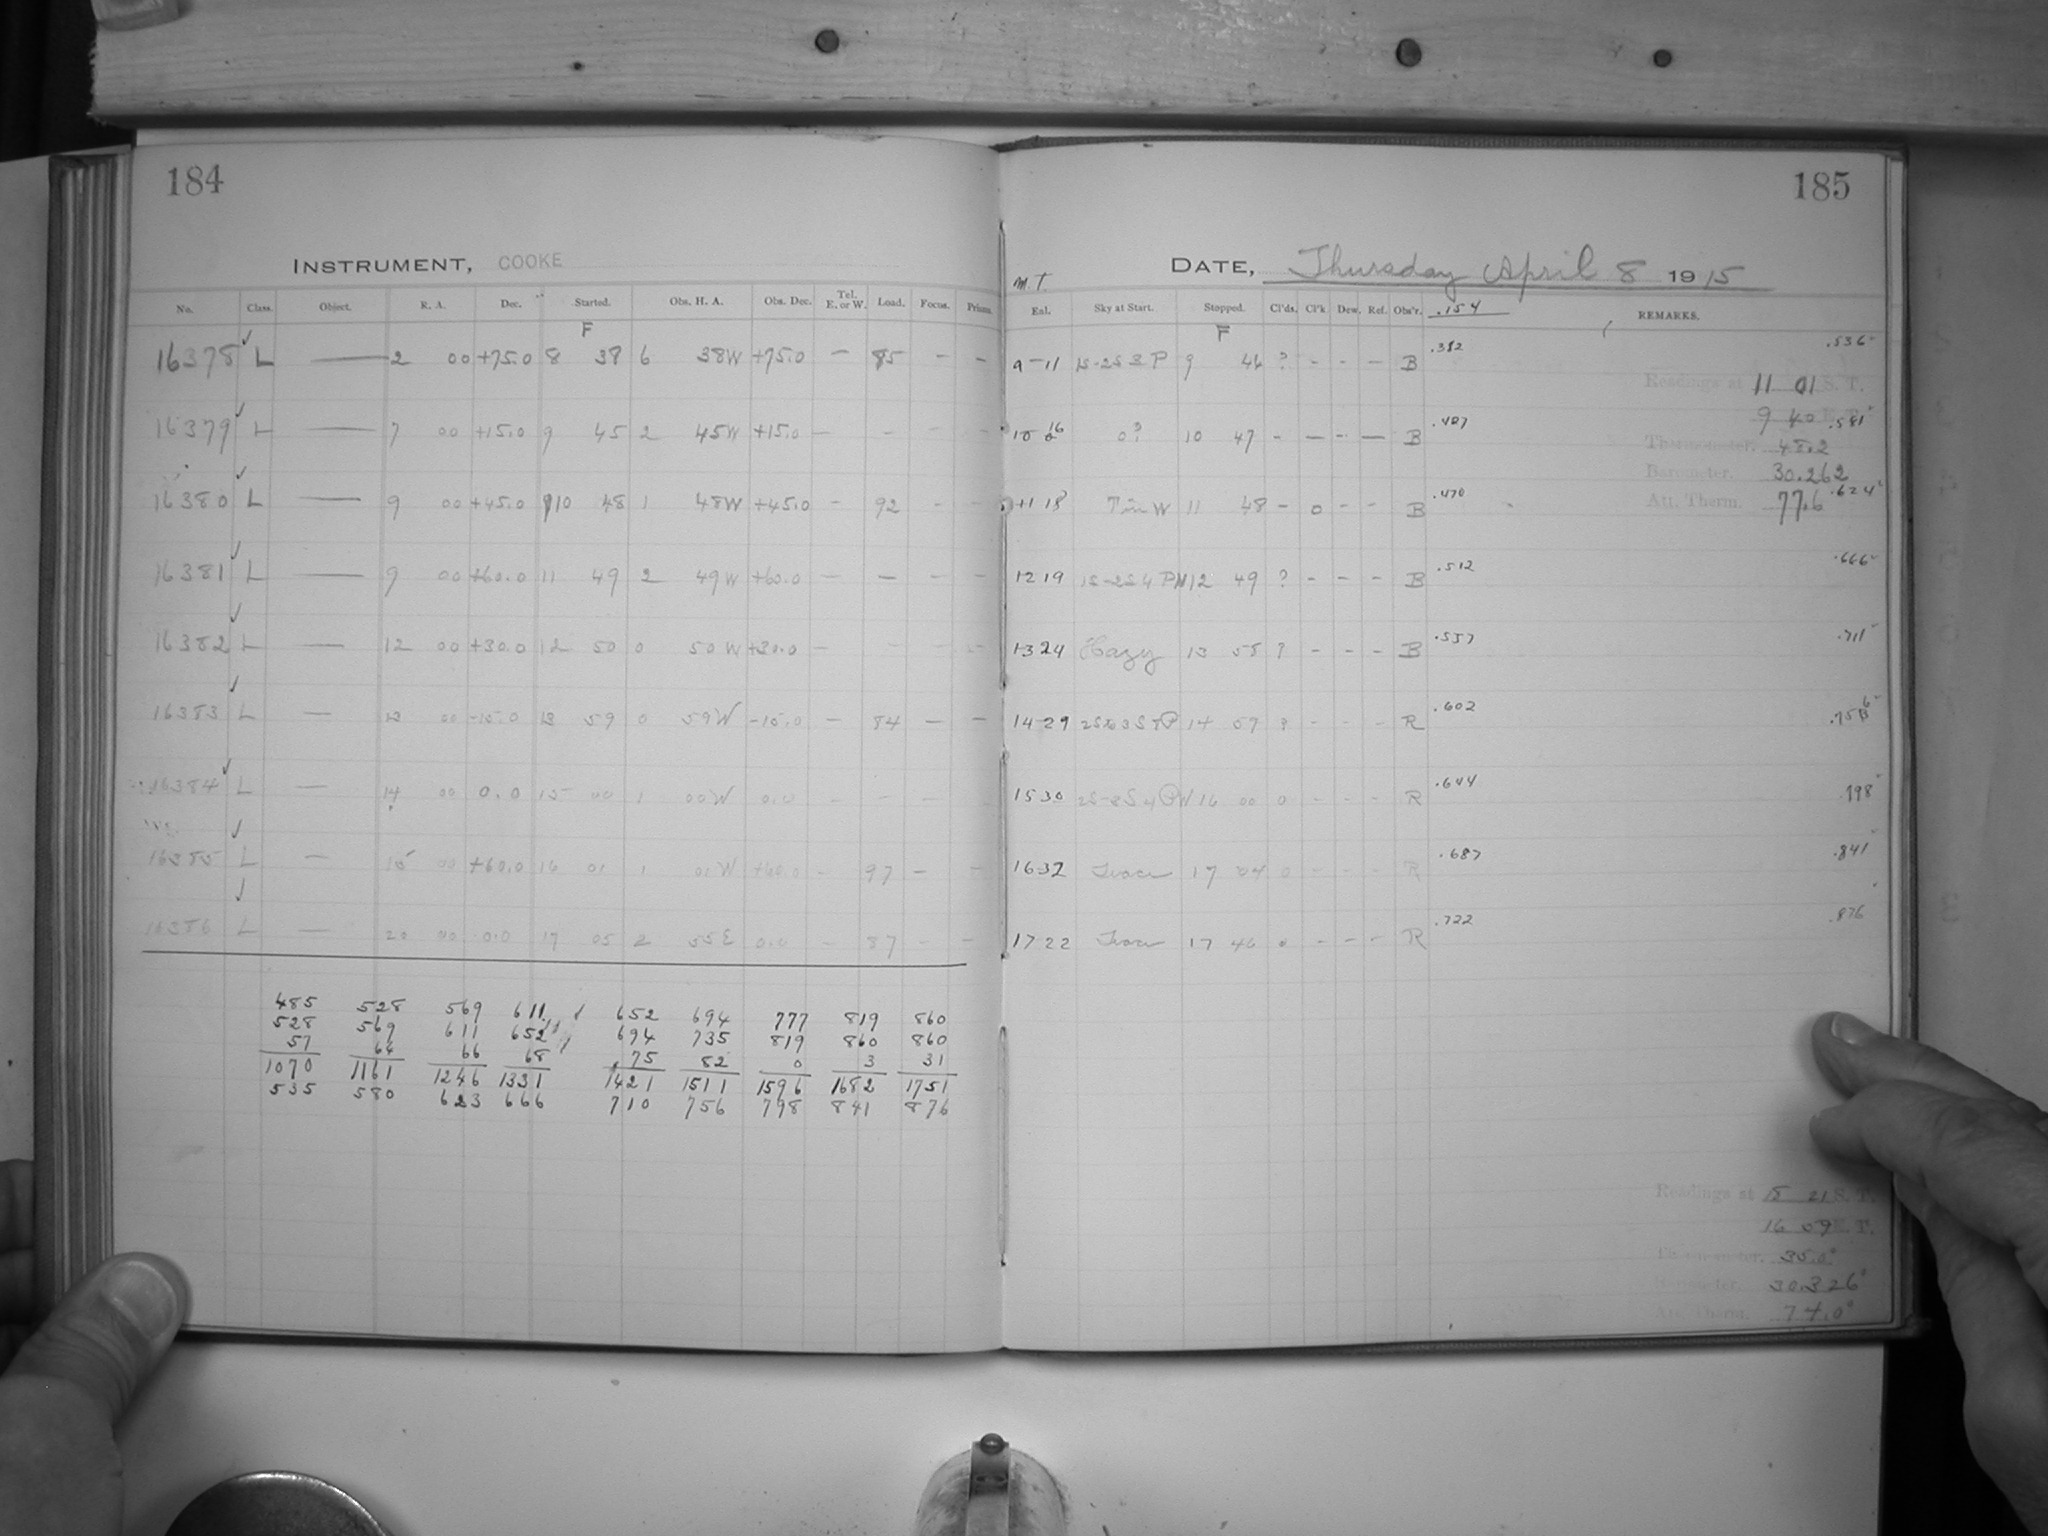 184
INSTRUMENT, COOKE
No. Class. Object. R. A. Dec. Started. Obs. H. A. Obs. Dec. Tel. E. or W. Load. Focus. Prisms.
F
16378 L — 2 00 +75.0 8 38 6 38W +75.0 — 85 - -
16379 L — 7 00 +15.0 9 45 2 45W +15.0 — - - -
16380 L — 9 00 +45.0 10 48 1 48W +45.0 - 92 - -
16381 L — 9 00 +60.0 11 49 2 49W +60.0 — — - -
16382 L — 12 00 +30.0 12 50 0 50W +30.0 — - - -
16383 L — 13 00 -15.0 13 59 0 59W -15.0 — 84 - -
16384 L — 14 00 0.0 15 00 1 00W 0.0 - - -
16385 L — 15 00 +60.0 16 01 1 01W +60.0 - 97 - -
16386 L — 20 00 0.0 17 05 2 55E 0.0 - 87 - -
485 528 569 611 652 694 777 819 860
528 569 611 652 694 735 819 860 860
57 64 66 68 75 82 0 3 31
1070 1161 1246 1331 1421 1511 1596 1682 1751
535 580 623 666 710 756 798 841 876
185
DATE, Thursday April 8 1915
M.T.
Exl. Sky at Start. Stopped. Cl'ds. Cl'k Dew. Ref. Obs'r. .154 REMARKS.
F
9-11 1S-2S 3 P 9 46 ? - - - B .382 .536
Readings at 11 01 S. T.
9 40 .581
10 16 0? 10 47 - — - — B .427
Thermometer. 48.2
Barometer. 30.262
11 18 W 11 48 - 0 - - B .470 .624
Att. Therm. 77.6
12 19 1S-2S 4 PN 12 49 ? - - - B .512 .666
13 24 Hazy 13 55 ? - - - B .557 .711
14-29 14 59 ? - - - R .602 .756
15 30 2S-3S 4 PW 16 00 0 - - - R .644 .798
16 32 Trace 17 04 0 - - - R .687 .841
17 22 Trace 17 40 0 - - - R .722 .876
Readings at 15 21 S. T.
16 09 E. T.
Thermometer. 35.0°
Barometer. 30.326
Att. Therm. 74.0°